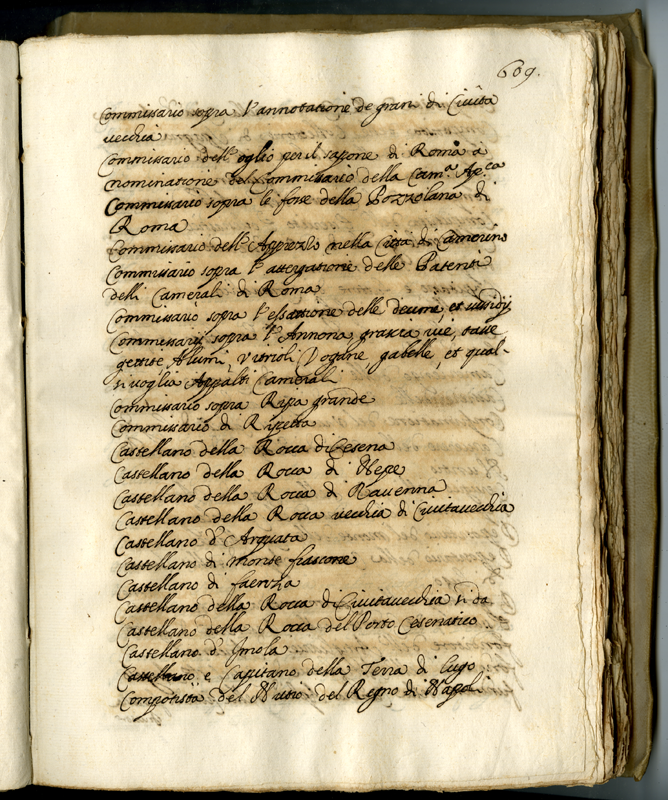 609.
Commissario sopra l'annotatione de grani di Civita
vecchia
Commissario dell'oglio per il sapone di Roma a
nominatione del Commissario della Cam.ª Ap.ca
Commissario sopra le fosse della Pozzolana di
Roma
Commissario dell' nella Città di Camerino
Commissario sopra l' delle Patenti
delli Camerali di Roma
Commissario sopra l'essattione delle decime, et sussidij
Commissarij sopra l'Annona, grascia, vie, tasse
gettite Alumi, Vitrioli Dogane gabelle, et qual-
sivoglia Appalti Camerali
Commissario sopra Ripa grande
Commissario di Ripetta
Castellano della Rocca di Cesena
Castellano della Rocca di Nepe
Castellano della Rocca di Ravenna
Castellano della Rocca vecchia di Civitavecchia
Castellano d'Arquata
Castellano di monte fiascone
Castellano di faenza
Castellano della Rocca di Civitavecchia si da
Castellano della Rocca del Porto Cesenatico
Castellano d'Imola
Castellano e Capitano della Terra di Lugo
Computista del Nutio del Regno di Napoli